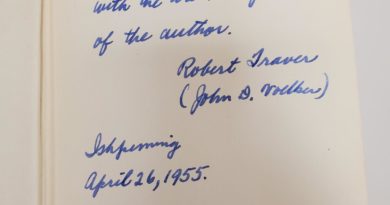 with the
of the author.
Robert Traver
(John D. Voelker)
Ishpeming
April 26, 1955.